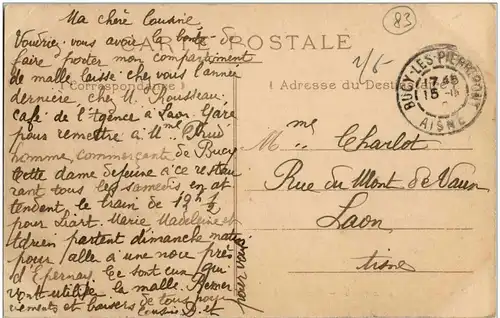 Ma chère Cousine,
Voudriez-vous avoir la bonté de
faire porter mon compartiment
de malle laissé chez vous l'année
dernière, chez M. Rousseau
café de l'Agence à Laon Gare
pour remettre à Mme Prud
homme, commerçante de Bucy
Cette dame dejeune à ce restau
rant tous les samedis en at
tendent le train de 1h 1/2
pour Liart. Marie Madeleine et
Adrien partent dimanche matin
pour aller a une noce près
d'Epernay. Ce sont eux qui
vont utiliser la malle. Remer
ciements et baisers de tous pour
vous
cousin
CARTE POSTALE
Correspondance
Adresse du Destinataire
83
BUCY-LES-PIERREPONT
17 45
15
AISNE
Mme Charlot
Rue du Mont de Vaux
Laon
Aisne